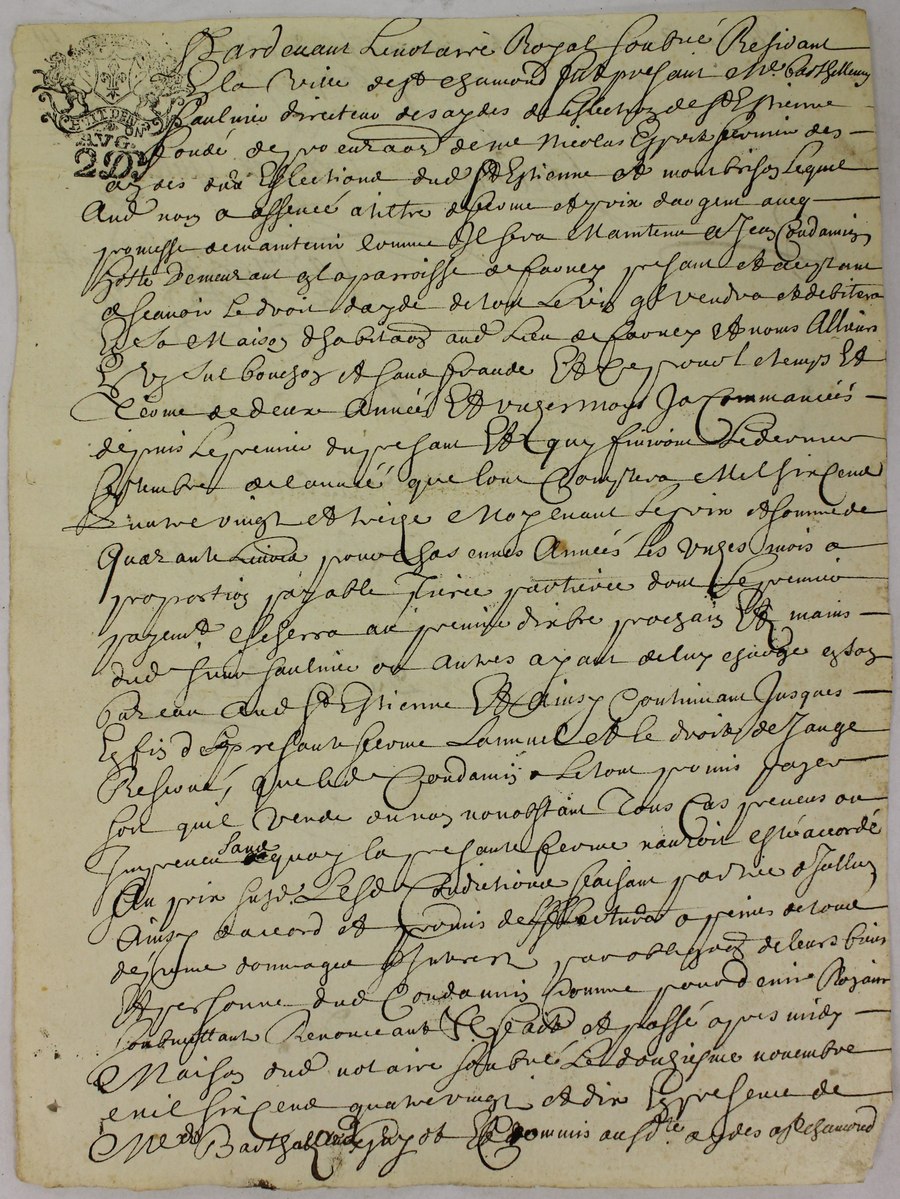 Pardevant Le notaire Royal soubzné Residant
a la Ville de St chamond fut present Me barthellemy
Saulnier directeur des aydes de Leslection de St Estienne
fondé de procuraon de me Nicolas fermier des
aydes des Eslections dud St Estienne et montbrison Lequel
Aud nom a assencé a tiltre de ferme et prix dargent avec
promesse de maintenir comme Il sera Maintenu a Jean Condamin
hoste Demeurant en la parroisse de farney presant et acceptant
a scavoir Le droit dayde de tout Le vin qil vendra et debitera
En sa Maison dhabitaon aud Lieu de farney Et nonis Allieurs
En Un sul bouchon et sans fraude Et Ce pour l etemps Et
Terme de deux Années Et unze moys Ja Commancéés
depuis Le premier du presant Et quy finiront Le dernier
septembre de lannéé que lont Comptera Mil six Cens
Quatre vingt et treize Moyenant Le prix et somme de
Quarante Livres pour chascunes Années Les Unzes mois a
proportion payable par quartier dont Le premier
payemt Escherra au premier dixbre prochain Et mains
dud sieur saulnier ou autres ayant de luy charge en son
bureau Aud St Estienne Et Ainsy Continuant Jusques
En fin de la presante ferme Lannuel et le droit de Jauge
Reservé, que led Condamin a Le tout promis payer
soit quil Vende ou non nonobstant Tous Cas preveus ou
Impreveus sans quoy la presante ferme nauroit esté accordé
Au prix susd. Lesd Conditions faisant partie a Jcelluy
Ainsy daccord et promis a peines de tous
despens dommages Interest par obligaon de leurs biens
Et personne dud Condamin comme pour deniers Royaux
soubmettant Renonceant Et fait et passé apres midy
Maison dud notaire soubzné Le douziesme novembre
mil six cens quatre vingt et dix En presence de
Me Barthellemy Guyot Commis ausd aydes a St chamond
ETIT DERN
ON
AVG.
2 D